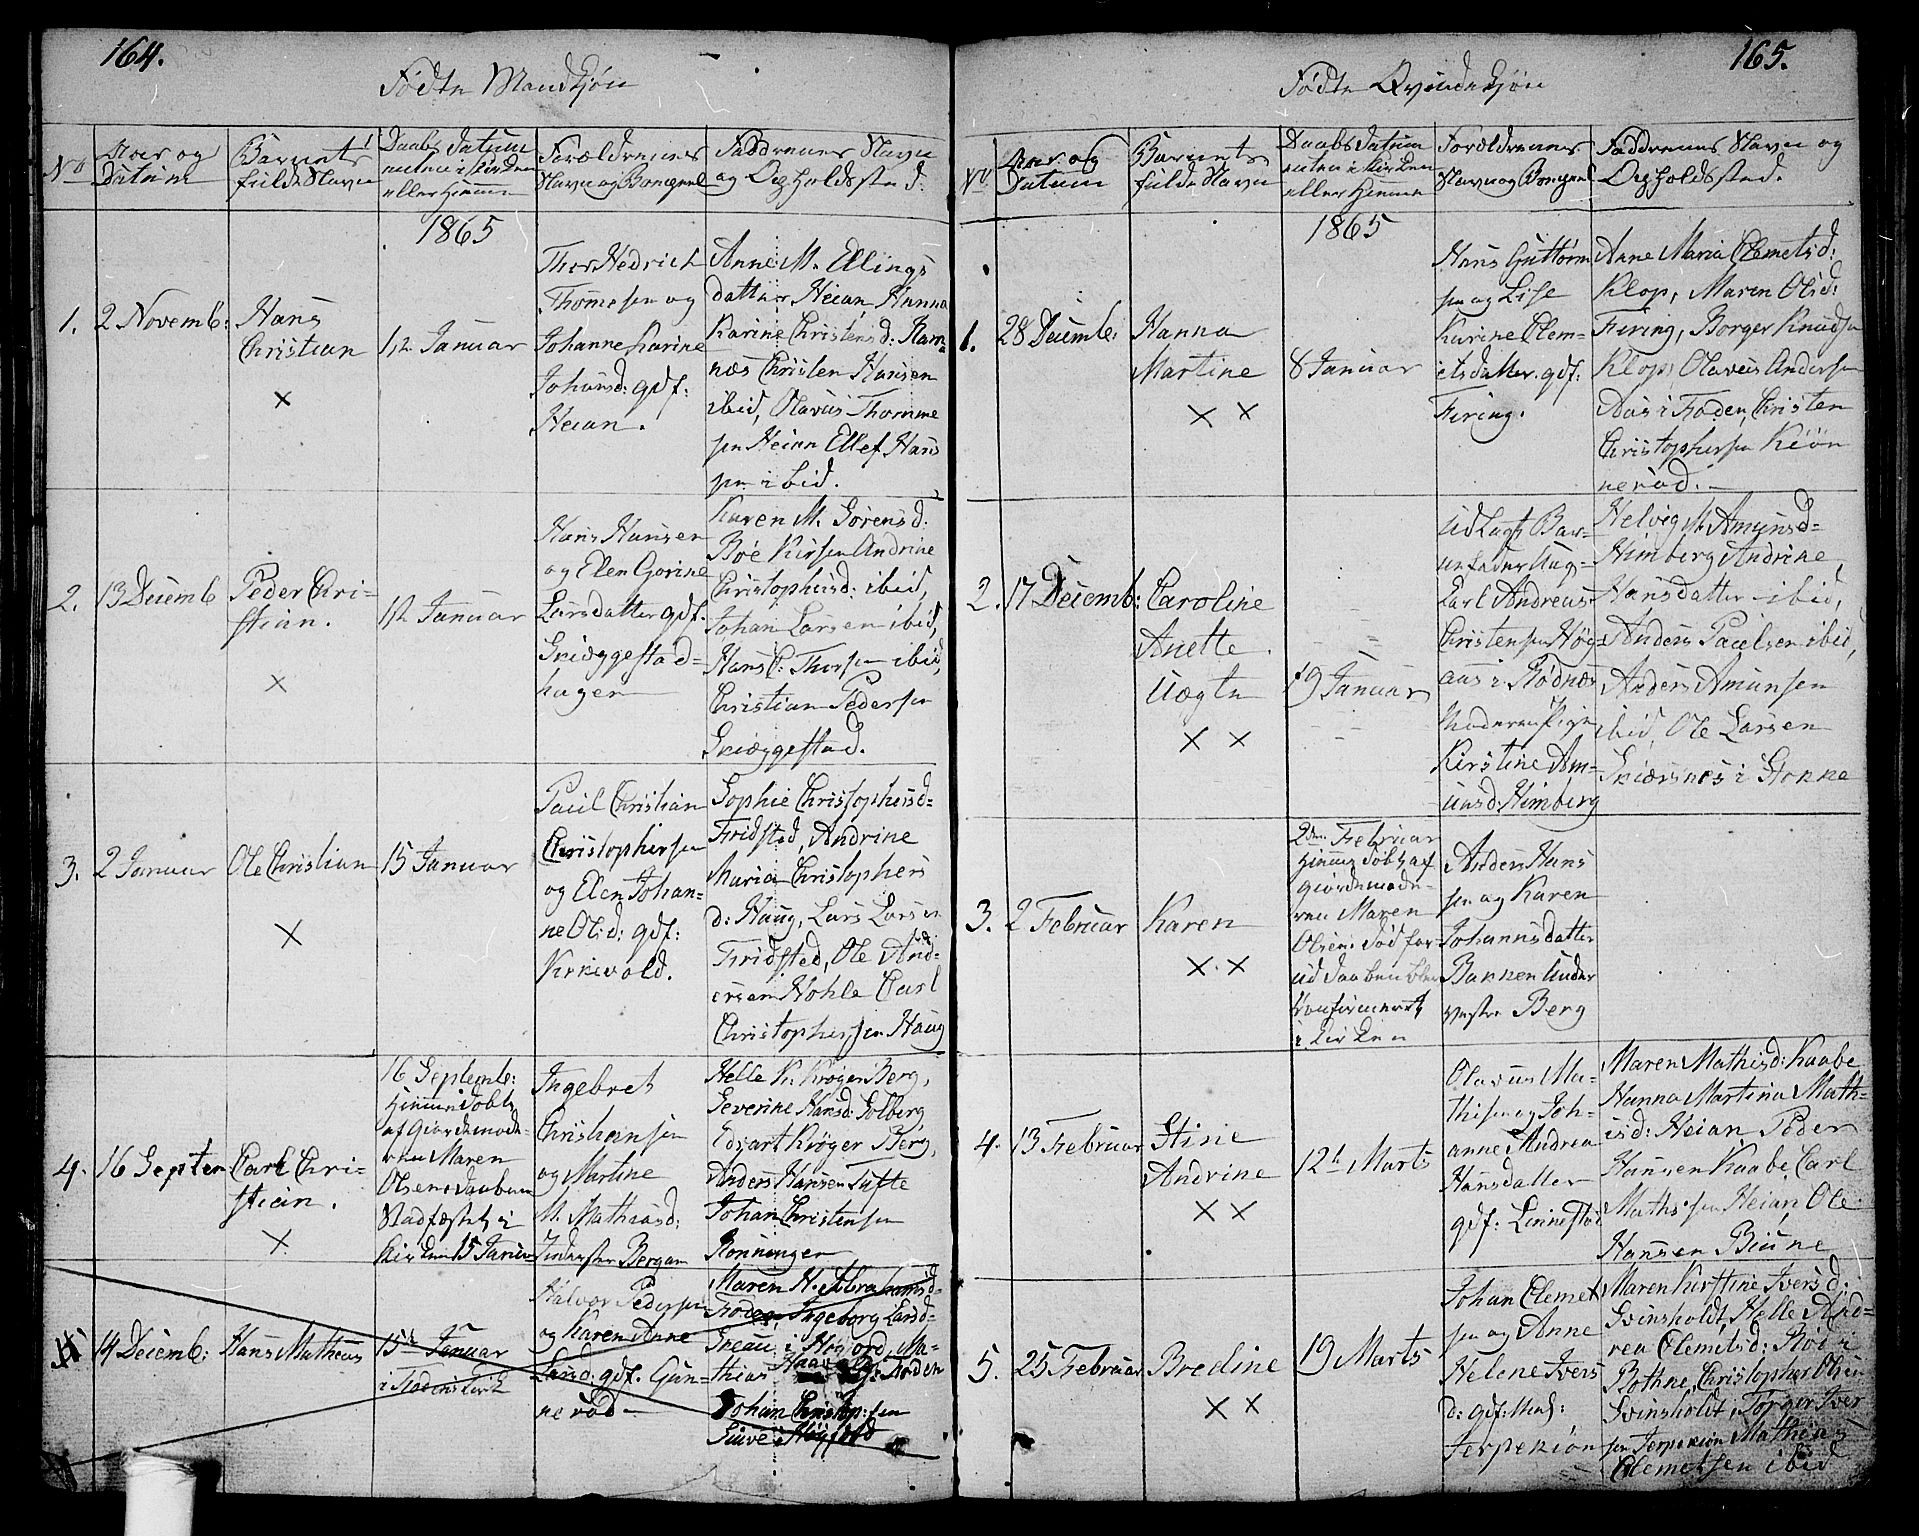 164.
Fødte Mandkjøn
No
Aar og
Datum
Barnets
fulde Navn
Daabs Datum
enten i Kirken
eller Hjemme
Forældrenes
Navn og Borgerl
Faddrenes Navn
og Opholdssted:
1865
1.
2 Novemb:
Hans
Christian
×
12 Januar
Thor Hedrich
Thomesen og
Johanne Karine
Johansd: gdf:
Heian.
Anne M. Ellings
datter Heian, Hanna
Karine Christensd: Ram-
næs Christen Hansen
ibid, Olavus Thomme
sen Heian Ellef Hans
sen ibid.
2.
13 Decemb
Peder Chri-
stian.
×
12 Januar
Hans Hansen
og Elen Gorine
Larsdatter gdf.
Skiæggestad-
hagen
Karen M. Sørensd:
Bøe Andrine
Christophersd: ibid,
Johan Larsen ibid,
Hans C. Thorsen ibid,
Christian Pedersen
Skiæggestad.
3.
2 Januar
Ole Christian
×
15 Januar
Paul Christian
Christophersen
og Elen Johan-
ne Olsd: gdf:
Kirkevold.
Sophie Christophersd-
Fridsted, Andrine
Maria Christophers
d: Haug, Lars Larsen
Fridsted, Ole And-
ersen Hohle Carl
Christophersen Haug
4.
16 Septem
Carl Chri-
stian.
×
16 Septemb:
Hjemmedøbt
af Giordemode-
ren Maren
Olsen Daaben
Stadfæstet i
Kirken 15 Januar
Ingebret
Christiansen
og Martine
M. Mathiasd:
Bergan
Helle K. Krøger Berg,
Severine Hansd: Solberg
Edvart Krøger Berg,
Anders Hansen Tufte
Johan Christensen
Rønningen
14 Decemb:
Hans Matheus
15 Januar
i Fodens Kirk
Halvor Pedersen
og Karen Anne
Larsd: gdf. Gun-
nerød
Maren H. Abrahamsd-
Foden, Ingeborg Larsd-
Johan Christop:sen
165.
Fødte Qvindekjøn
No
Aar og
Datum
Barnets
fulde Navn
Daabs Datum
enten i Kirken
eller Hjemme
Forældrenes
Navn og Borgerl
Faddrenes Navn og
Opholdssted.
1865
1.
28 Decemb:
Hanna
Martine
× ×
8 Januar
Hans Guttorm
sen og Lise
Karine Clem-
etsdatter. gdf:
Firing.
Anne Maria Clemetsd:
Klop, Maren Olsd:
Firing, Borger Knudsen
Klop, Olaves Andersen
Aas i Foden, Christen
Christophersen Kiøn
nerød.
2.
17 Decemb:
Caroline
Anette
Uægte
× ×
19 Januar
Udlagt Bar-
nefader Ung-
Carl Andreas
Christensen Høg-
aas i Rødnæs
Moderen Pige
Kirstine Am-
unsd: Himberg
Helvig Amunsd-
Himberg Andrine
Hansdatter ibid,
Anders Paulsen ibid,
Anders Amunsen
ibid, Ole Larsen
Skiærsnes i Stokke
3.
2 Februar
Karen
× ×
2den Februar
Hjemmedøbt af
Giordemode-
ren Maren
Olsen. Død for-
ud Daaben blev
Confirmeret
i Kirken
Anders Hans
sen og Karen
Johannsdatter
Bakken under
vestre Berg
4.
13 Februar
Stine
Andrine
× ×
12te Marts
Olavus Ma-
thisen og Joh-
anne Andrea
Hansdatter
gdf: Linnestad
Maren Mathisd: Raabe
Hanna Martina Math-
isd: Heian Peder
Hansen Raabe Carl
Mathisen Heian Ole
Hansen Biune
5.
25 Februar
Bredine
× ×
19 Marts
Johan Clemet
sen og Anne
Helene Ivers
d: gdf:
Jerpekiøn
Maren Kirstine Iversd:
Svinsholdt, Helle And-
rea Clemetsd: Rød i
Bothne, Christopher Olsen
Svinsholdt, Torger Iver
sen Jerpekiøn Mathias
Clemetsen ibid